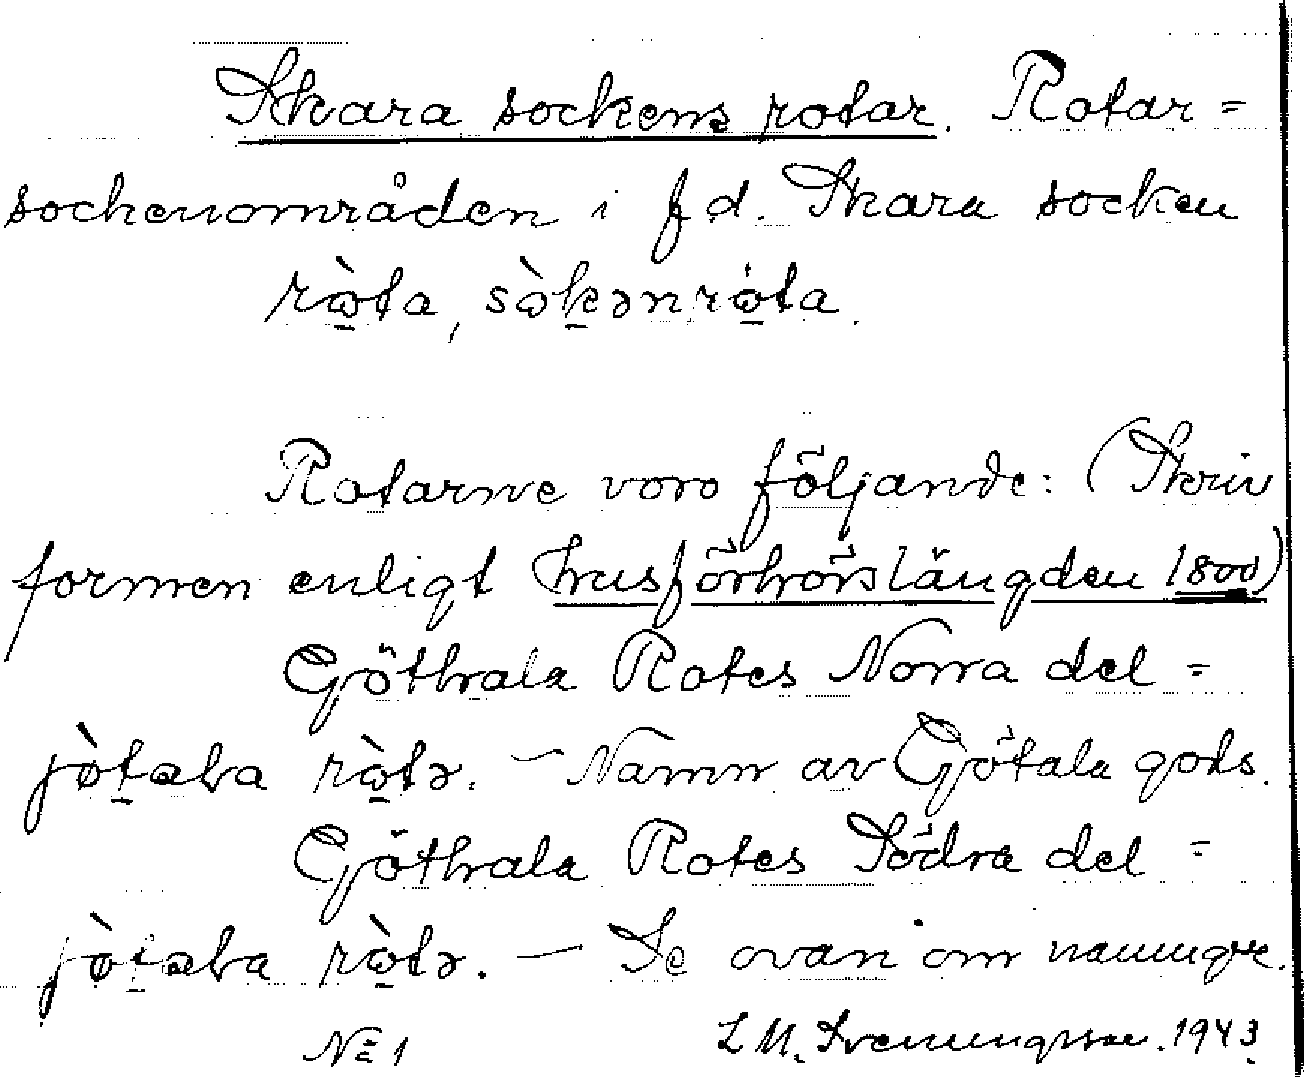 Skara sockens rotar. Rotar =
sockenområden i f d. Skara socken
rὼta, sὼkənrὼta.
Rotarne voro följande: (Skriv
formen enligt husförhörslängden 1800)
Göthala Rotes Norra del =
jø̀taɬa rὼtə. — Namn av Götala gods.
Göthala Rotes Södra del =
jø̀taɬa rὼtə. — Se ovan om namngre.
No 1 L M. Svenungsson. 1943.